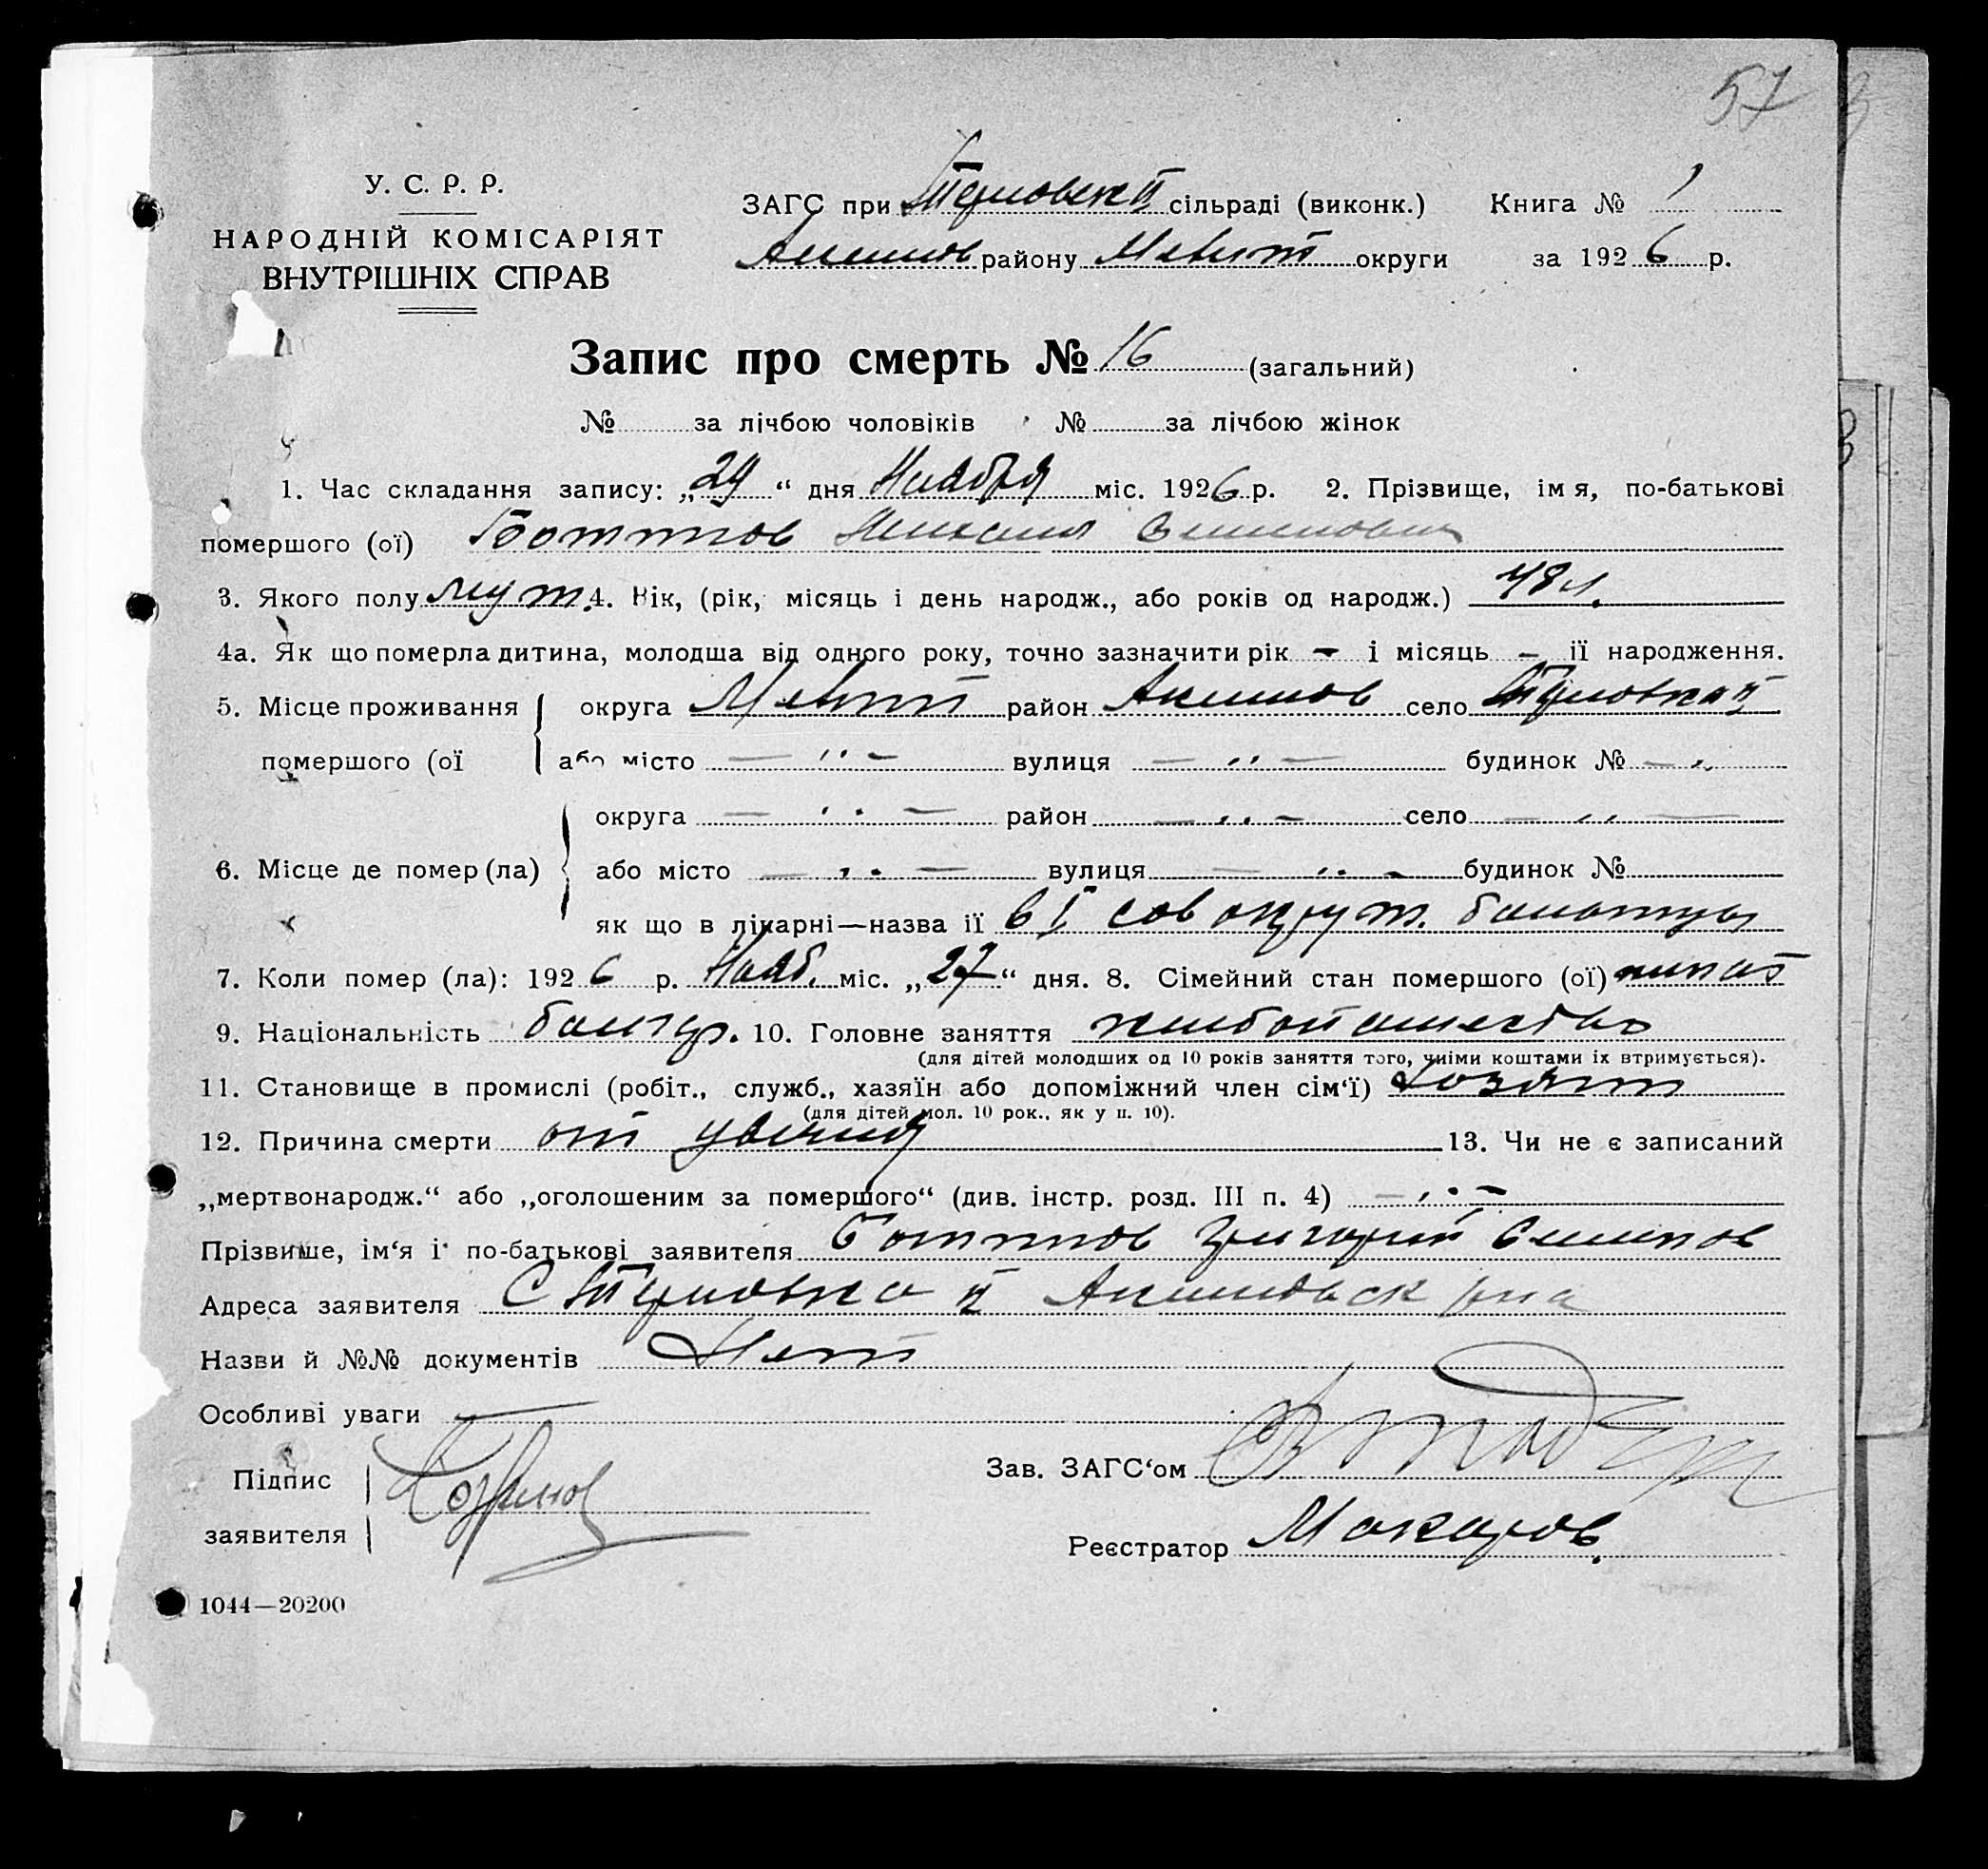 57
У. С. Р. Р.
НАРОДНІЙ КОМІСАРІЯТ
ВНУТРІШНІХ СПРАВ
ЗАГС при сільраді (виконк.) Книга № 1
Акимов району Мелит округи за 1926 р.
Запис про смерть № 16 (загальний)
№ за лічбою чоловіків № за лічбою жінок
1. Час складання запису: „29“ дня Ноября міс. 1926 р. 2. Прізвище, імя, по-батькові
помершого (ої) Михаил
3. Якого полу муж. 4. Вік, (рік, місяць і день народж., або років од народж.) 48 л.
4а. Як що померла дитина, молодша від одного року, точно зазначити рік - і місяць - її народження.
5. Місце проживання округа Мелит район Акимов село
помершого (ої або місто — " — вулиця — " — будинок № — "
округа — " — район — " — село — " —
6. Місце де помер (ла) або місто — " — вулиця — " — будинок №
як що в лікарні—назва її в І сов окруж. больницы
7. Коли помер (ла): 1926 р. Нояб. міс. „27“ дня. 8. Сімейний стан помершого (ої) женат
9. Національність болгар. 10. Головне заняття хлебопашество
(для дітей молодших од 10 років заняття того, чиїми коштами їх втримується).
11. Становище в промислі (робіт., служб., хазяїн або допоміжний член сім‘ї) Хозяин
(для дітей мол. 10 рок., як у п. 10).
12. Причина смерти от увечия 13. Чи не є записаний
„мертвонародж.“ або „оголошеним за помершого“ (див. інстр. розд. III п. 4) — " —
Прізвище, ім‘я і по-батькові заявителя Григорий Семенов
Адреса заявителя С Акимовск р-на
Назви й №№ документів Нет
Особливі уваги —
Підпис
заявителя
Зав. ЗАГС‘ом
Реєстратор Макаров.
1044—20200